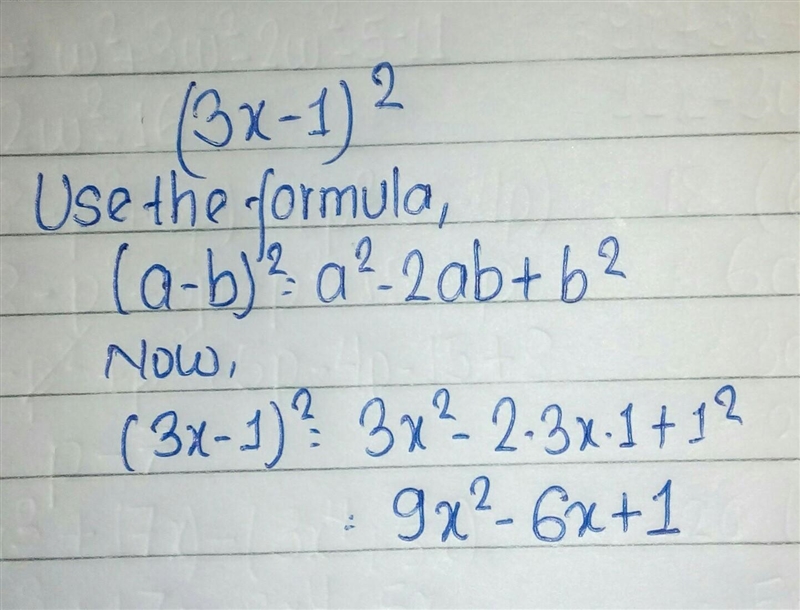 (3x-1)²
Use the formula,
(a-b)² = a² - 2ab + b²
Now,
(3x-1)² = 3x² - 2·3x·1 + 1²
= 9x² - 6x + 1